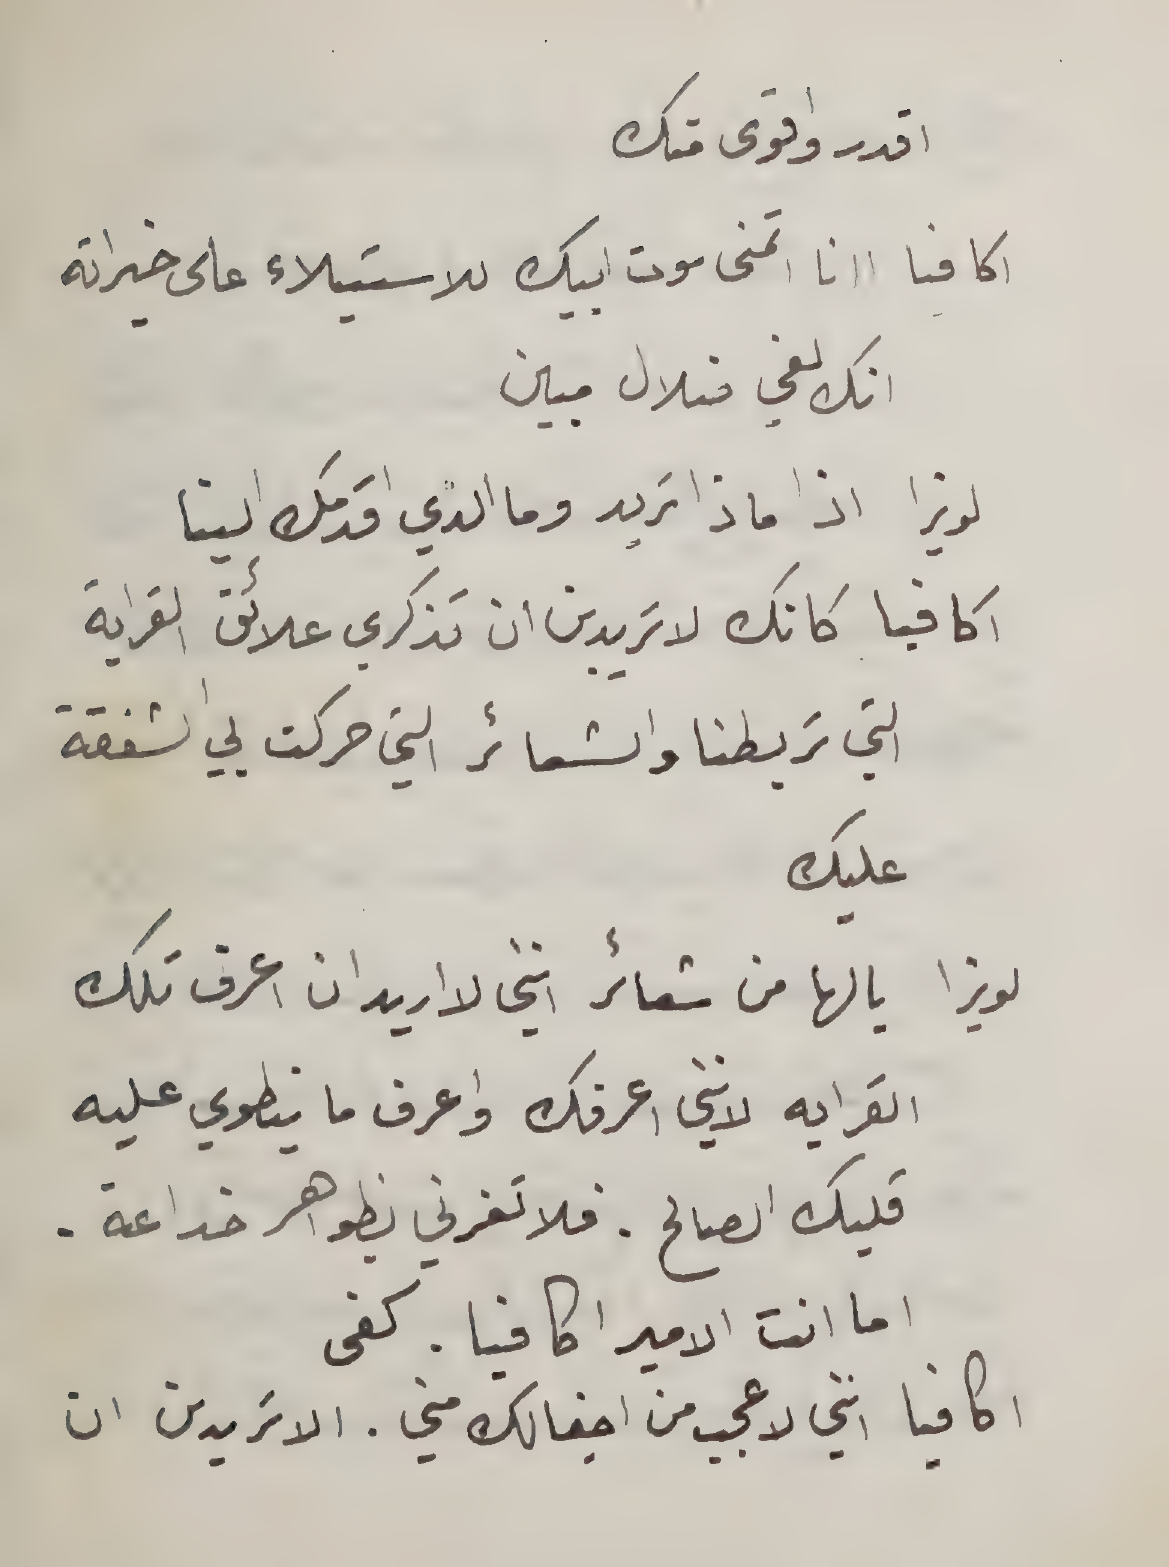 اقدر واقوى منك
اكافيا اانا اتمنى موت ابيك للاستيلاء على خيراته
انك لفي ضلال مبين
لويزا اذا ماذا تريد وما الذي اقدمك الينا
اكافيا كانك لا تريدين ان تذكري علائق القرابة
التي تربطنا والشعائر التي حركت بي الشفقة
عليك
لويزا يالها من شعائر انني لا اريد ان اعرف تلك
القرابه لانني اعرفك واعرف ما ينطوي عليه
قلبك الصالح . فلا تغرني بظواهر خداعة .
اما انت الامير اكافيا . كفى
اكافيا انني لاعجب من اجفالك مني . الا تريدين ان